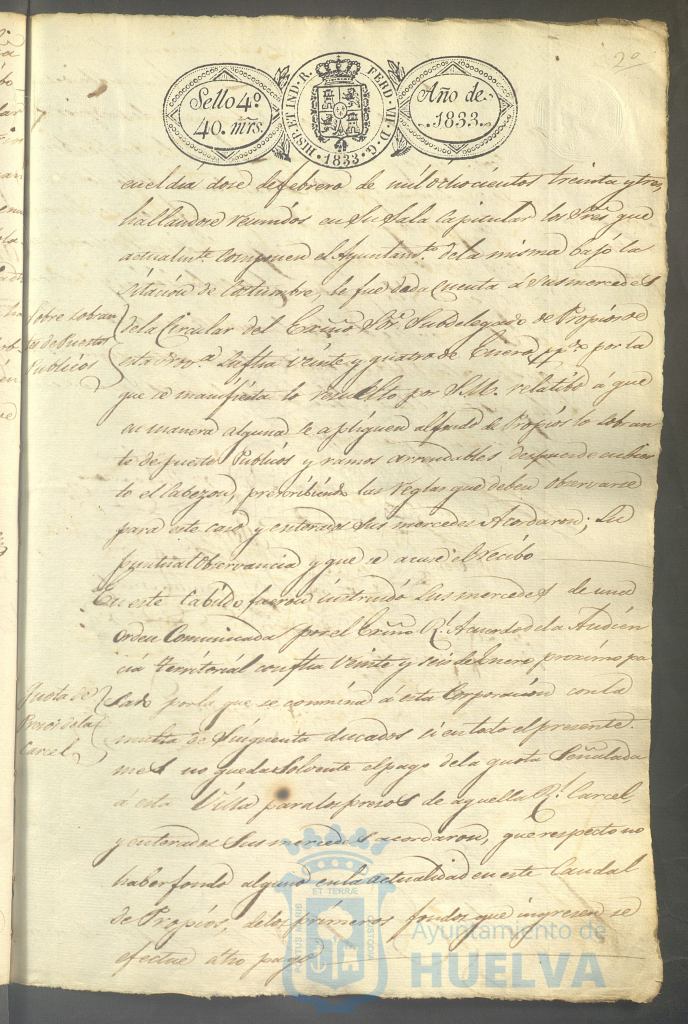 20
Sello 4º
40. mrs.
HISP. ET IND. R. FERD. VII. D. G.
1833
Año de
1833.
en el dia dose de febrero de mil ochocientos treinta y tres
hallandose reunidos en su Sala Capitular los Sres. que
actualmte. componen el Ayuntamto. de la misma bajo la
sitación de Costumbre, le fue dada Cuenta á Susmercedes
Sobre sobran
tes de Puestos
Publicos
de la Circular del Exmo. Sor. Subdelegado de Propios de
esta Prova. su fha veinte y quatro de Enero ppdo. por la
que se manifiesta lo resuelto por S.M. relatibo á que
en manera alguna se apliquen al fondo de Propios lo sobran
te de puestos Publicos y ramos arrendables despues de cubier
to el Cabezon, prescribiendo las Reglas que deben observarse
para este caso y enterados sus mercedes Acordaron; su
puntual Observancia y que se acuse el recibo
En este Cabildo fueron instruidos Sus mercedes de una
orden Comunicada por el Exmo. Rl. Acuerdo de la Audien
cia territorial con fha veinte y seis de Enero proximo pa
Quota de
Presos de la
Carcel
sado por la que se conmina á esta Corporacion con la
multa de Sinquenta ducados si en todo el presente
mes no queda solvente el pago de la quota Señalada
á esta Villa para los presos de aquella Rl. Carcel,
y enterados Sus mercedes acordaron, que respecto no
haber fondo alguno en la actualidad en este Caudal
de Propios, de los primeros fondos que ingresen se
efectue dho pago
PORTUS MARIS ET TERRÆ CUSTODIA
Ayuntamiento de
HUELVA